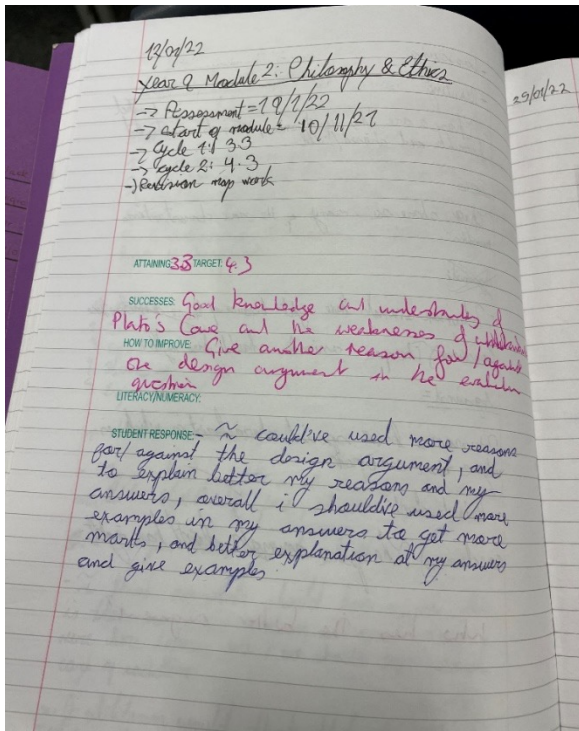 13/01/22
Year 9 Module 2: Philosophy & Ethics
-> Assessment = 19/1/22
-> start of module = 10/11/21
-> Cycle 1: 3.3
-> cycle 2: 4.3
-) Revision map work
29/01/22
ATTAINING: 3.3 TARGET: 4.3
SUCCESSES: Good knowledge and understanding of
Plato's Cave and the weaknesses of utilitarianism
HOW TO IMPROVE: Give another reason for/against
the design argument in the evaluation
question
LITERACY/NUMERACY:
STUDENT RESPONSE:- I could've used more reasons
for/against the design argument, and
to explain better my reasons and my
answers, overall i should've used more
examples in my answers to get more
marks, and better explanation at my answers
and give examples.